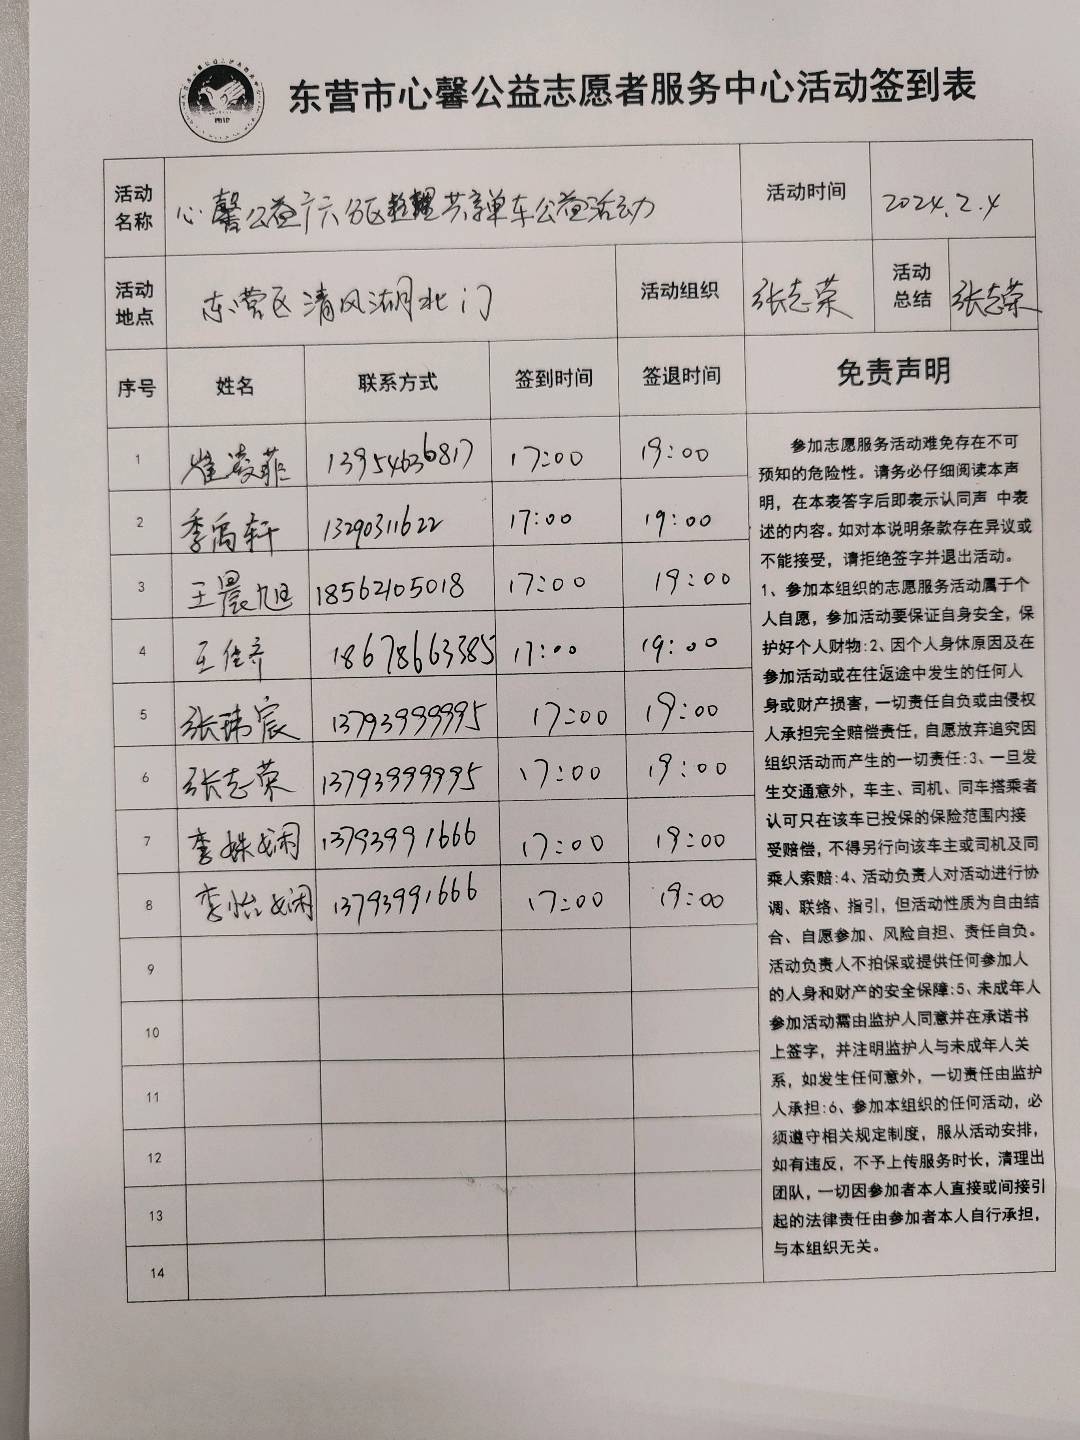 东营市心馨公益志愿者服务中心活动签到表
活动名称 心馨公益广六分区整理共享单车公益活动 活动时间 2024.2.4
活动地点 东营区清风湖北门 活动组织 张志荣 活动总结 张志荣
序号 姓名 联系方式 签到时间 签退时间 免责声明
1 崔凌菲 13954636817 17:00 19:00
2 季禹轩 13290311622 17:00 19:00
3 王晨旭 18562105018 17:00 19:00
4 王佳齐 18678663385 17:00 19:00
5 张玮宸 13793999995 17:00 19:00
6 张志荣 13793999995 17:00 19:00
7 李姝娴 13793991666 17:00 19:00
8 李怡娴 13793991666 17:00 19:00
9
10
11
12
13
14
参加志愿服务活动难免存在不可
预知的危险性。请务必仔细阅读本声
明，在本表答字后即表示认同声 中表
述的内容。如对本说明条款存在异议或
不能接受，请拒绝签字并退出活动。
1、参加本组织的志愿服务活动属于个
人自愿，参加活动要保证自身安全，保
护好个人财物:2、因个人身休原因及在
参加活动或在往返途中发生的任何人
身或财产损害，一切责任自负或由侵权
人承担完全赔偿责任，自愿放弃追究因
组织活动而产生的一切责任:3、一旦发
生交通意外，车主、司机、同车搭乘者
认可只在该车已投保的保险范围内接
受赔偿，不得另行向该车主或司机及同
乘人索赔:4、活动负责人对活动进行协
调、联络、指引，但活动性质为自由结
合、自愿参加、风险自担、责任自负。
活动负责人不拍保或提供任何参加人
的人身和财产的安全保障:5、未成年人
参加活动需由监护人同意并在承诺书
上签字，并注明监护人与未成年人关
系，如发生任何意外，一切责任由监护
人承担:6、参加本组织的任何活动，必
须遵守相关规定制度，服从活动安排，
如有违反，不予上传服务时长，清理出
团队，一切因参加者本人直接或间接引
起的法律责任由参加者本人自行承担，
与本组织无关。